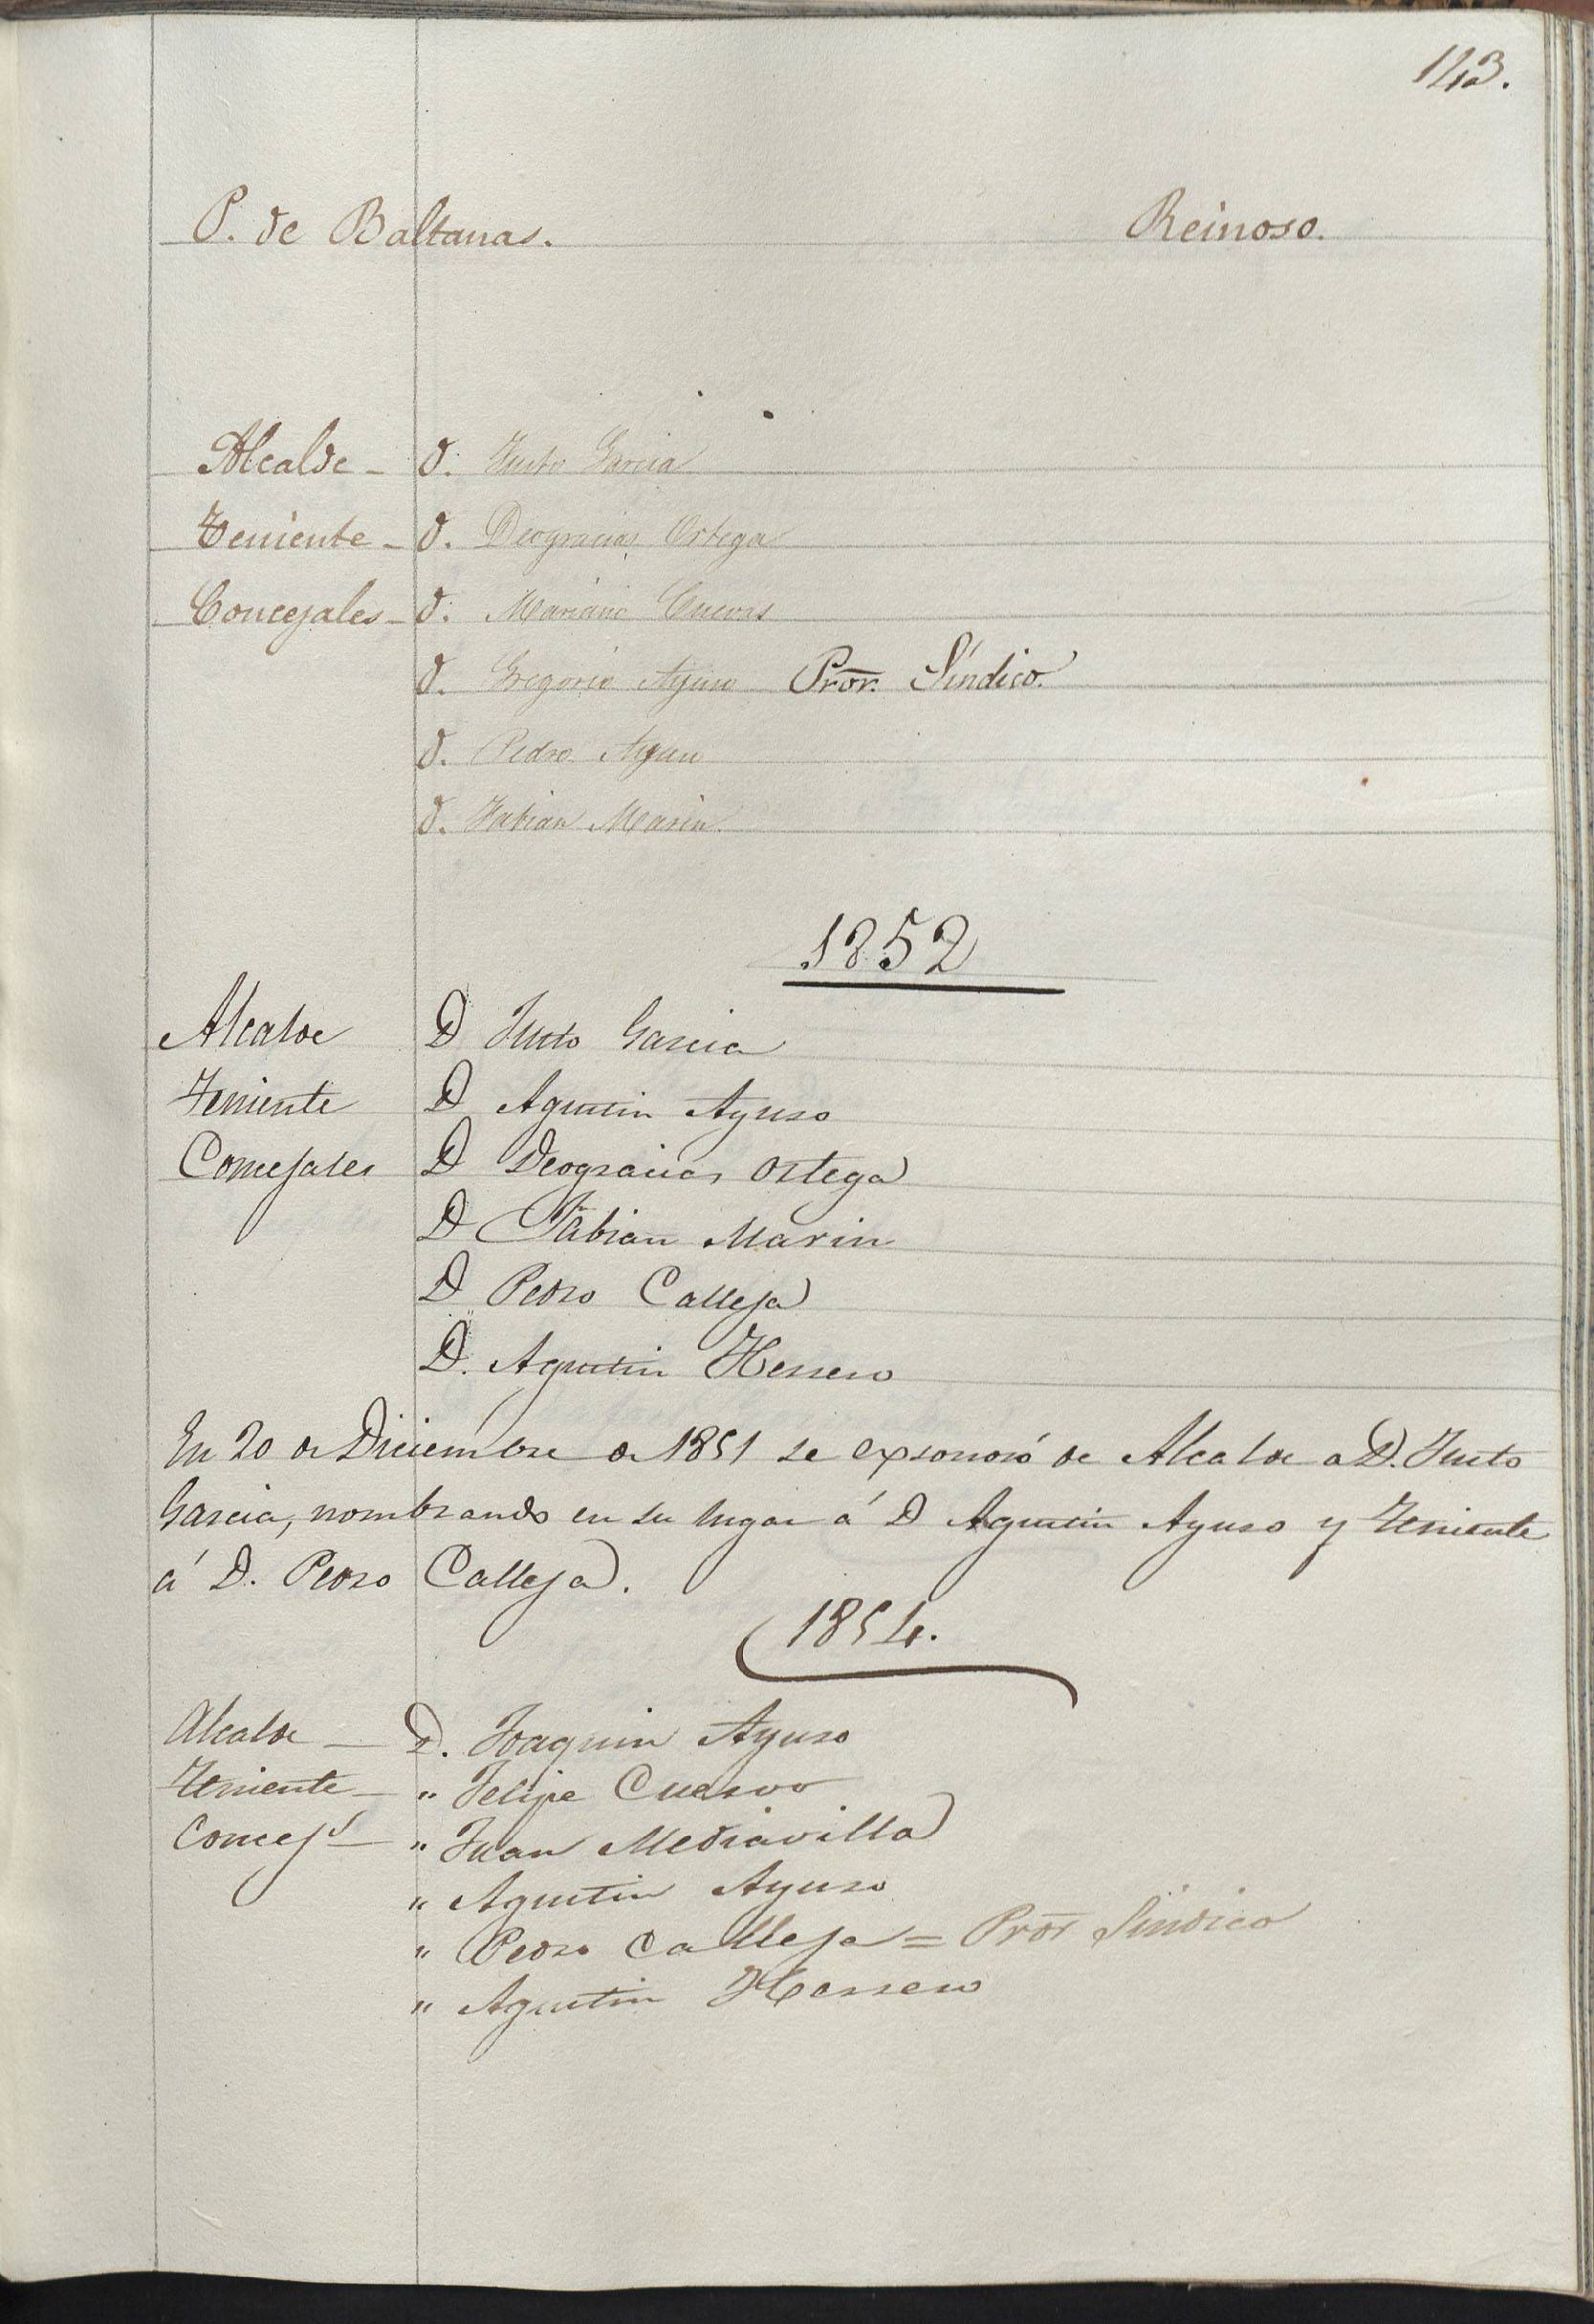 143.
P. de Baltanas. Reinoso.
Alcalde - D. Justo Garcia
Teniente - D. Deogracias Ortega
Concejales - D. Mariano Cuevas
D. Gregorio Ayuso Pror. Síndico.
D. Pedro Ayuso
D. Fabian Marin
1852
Alcalde D Justo Garcia
Teniente D Agustin Ayuso
Concejales D Deogracias Ortega
D Fabian Marin
D Pedro Calleja
D. Agustin Herrero
En 20 de Diciembre de 1851 se exsoneró de Alcalde a D. Justo
Garcia, nombrando en su lugar á D Agustin Ayuso y Teniente
á D. Pedro Calleja.
1854.
Alcalde - D. Joaquin Ayuso
Teniente - " Felipe Cuervo
Concejs - " Juan Mediavilla
" Agustin Ayuso
" Pedro Calleja = Pror Sindico
" Agustin Herrero